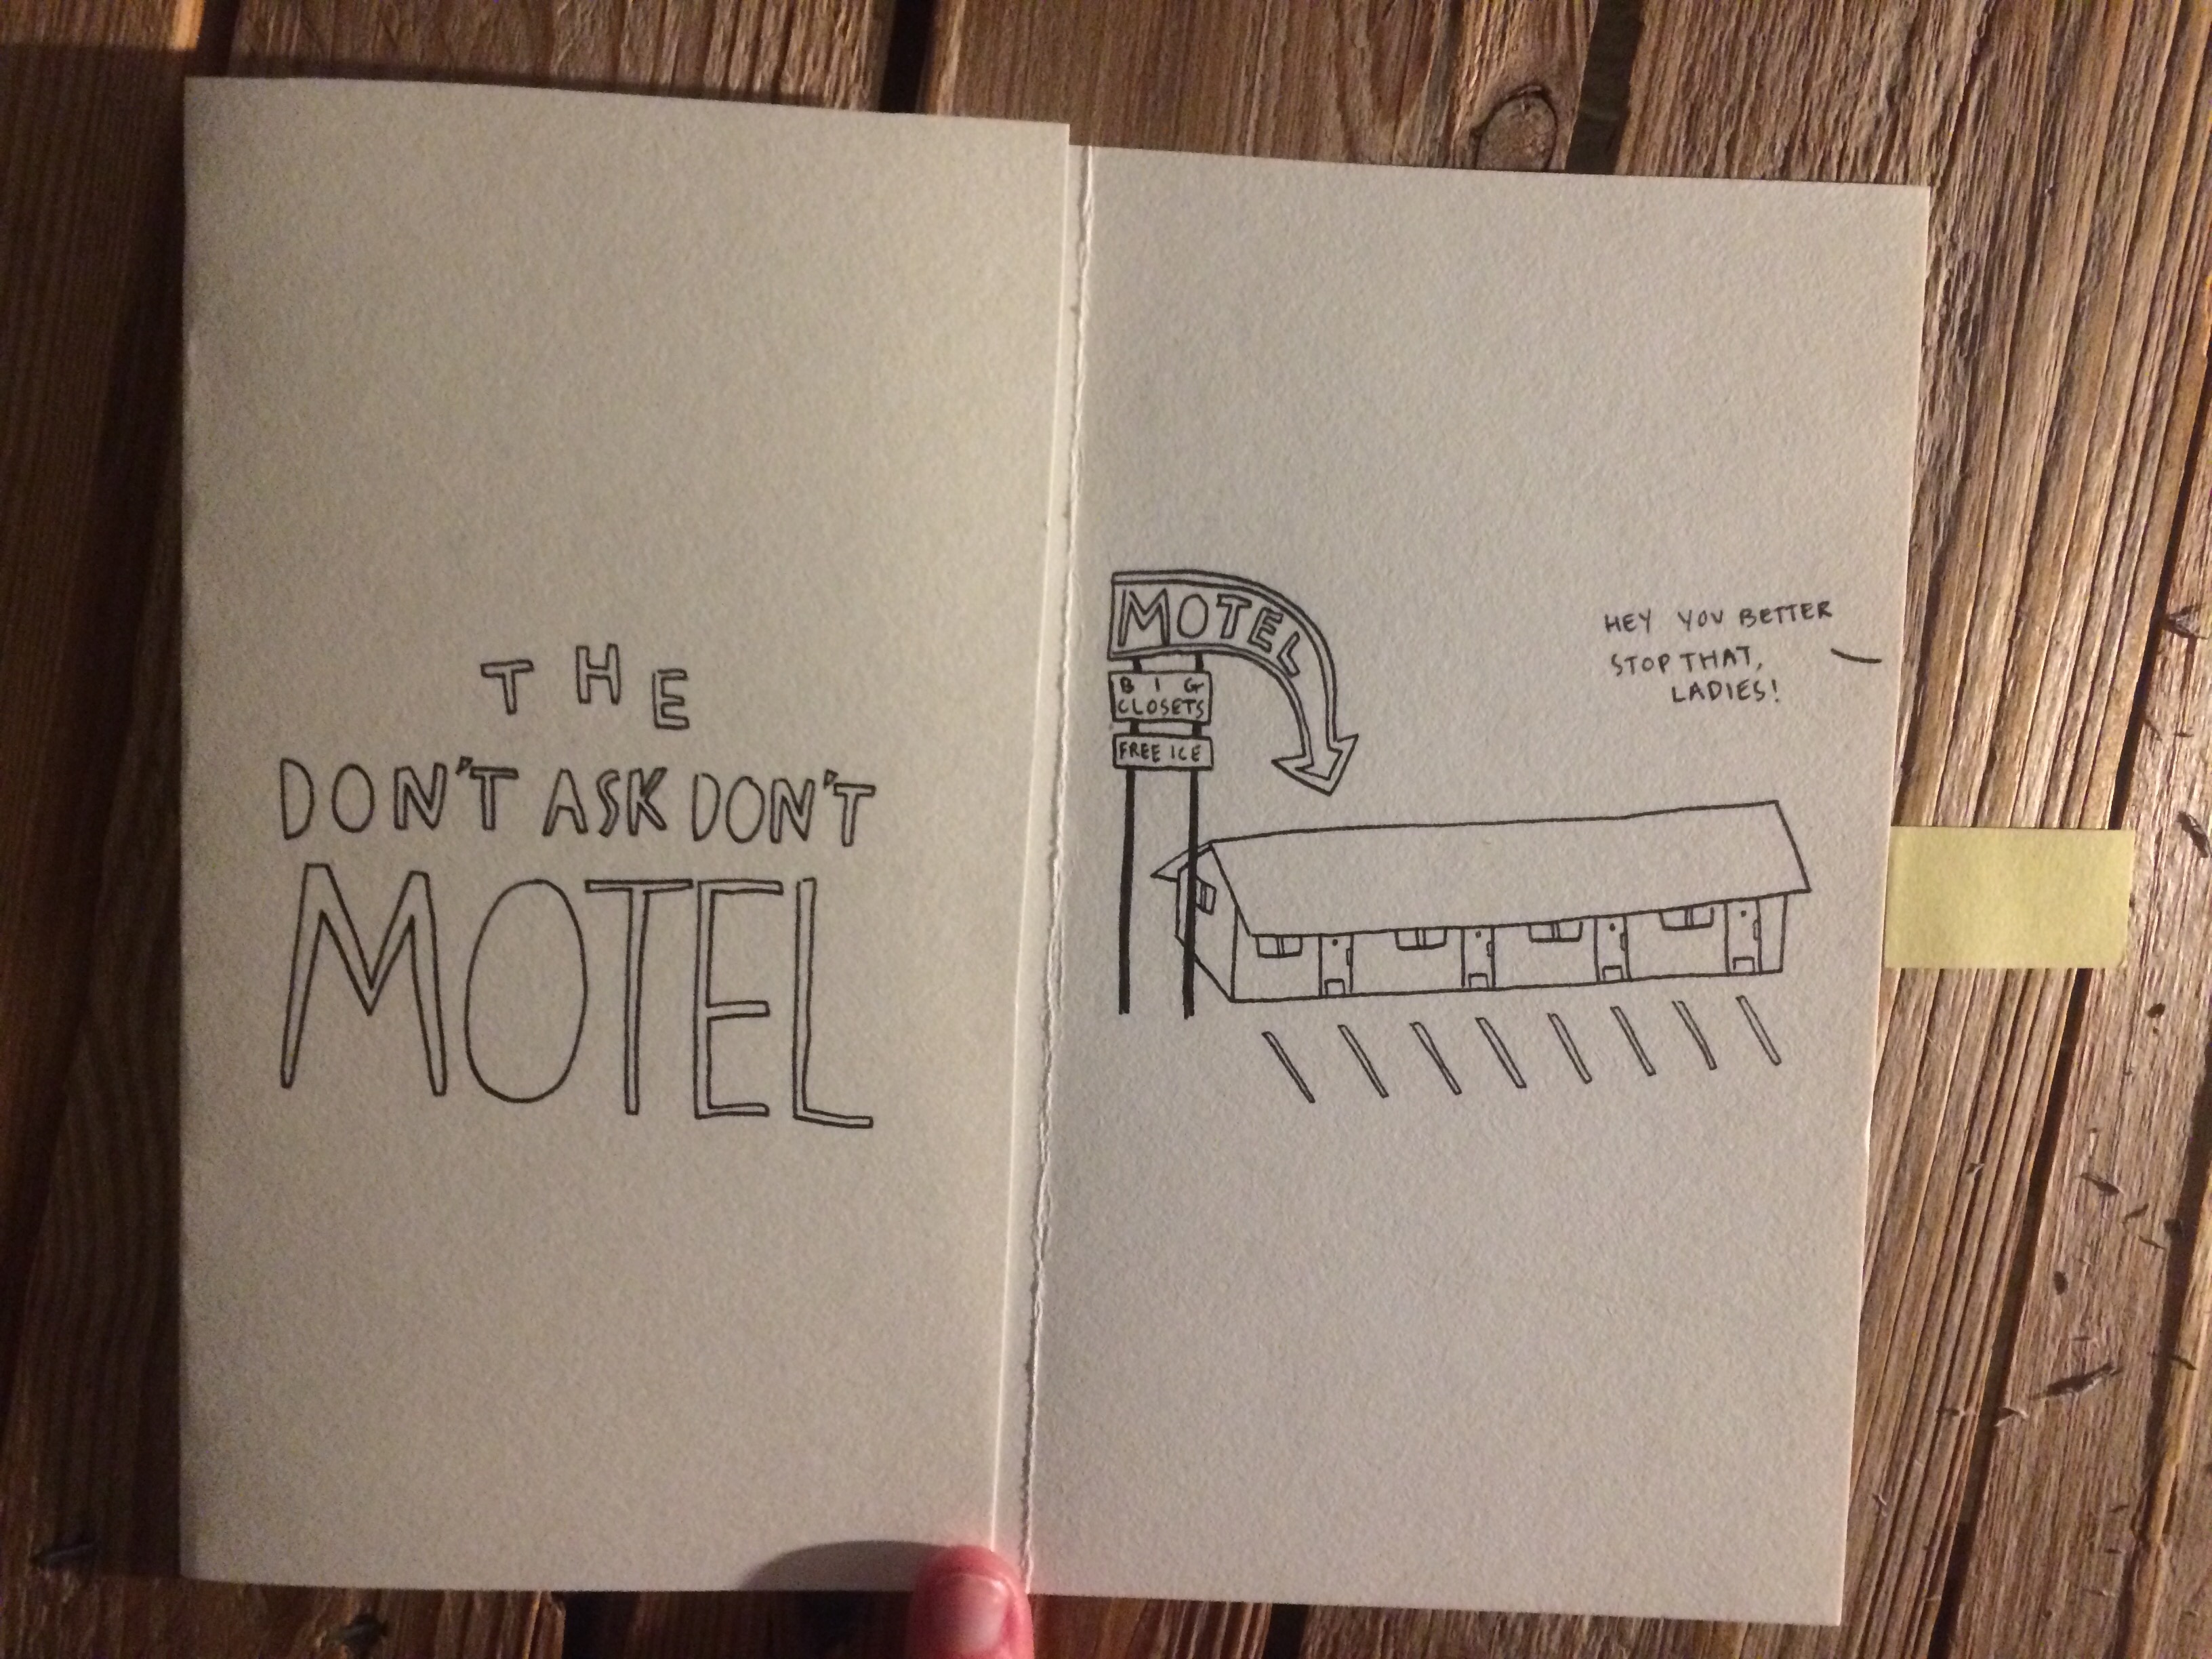 THE
DON'T ASK DON'T
MOTEL
MOTEL
BIG
CLOSETS
FREE ICE
HEY YOU BETTER
STOP THAT,
LADIES!